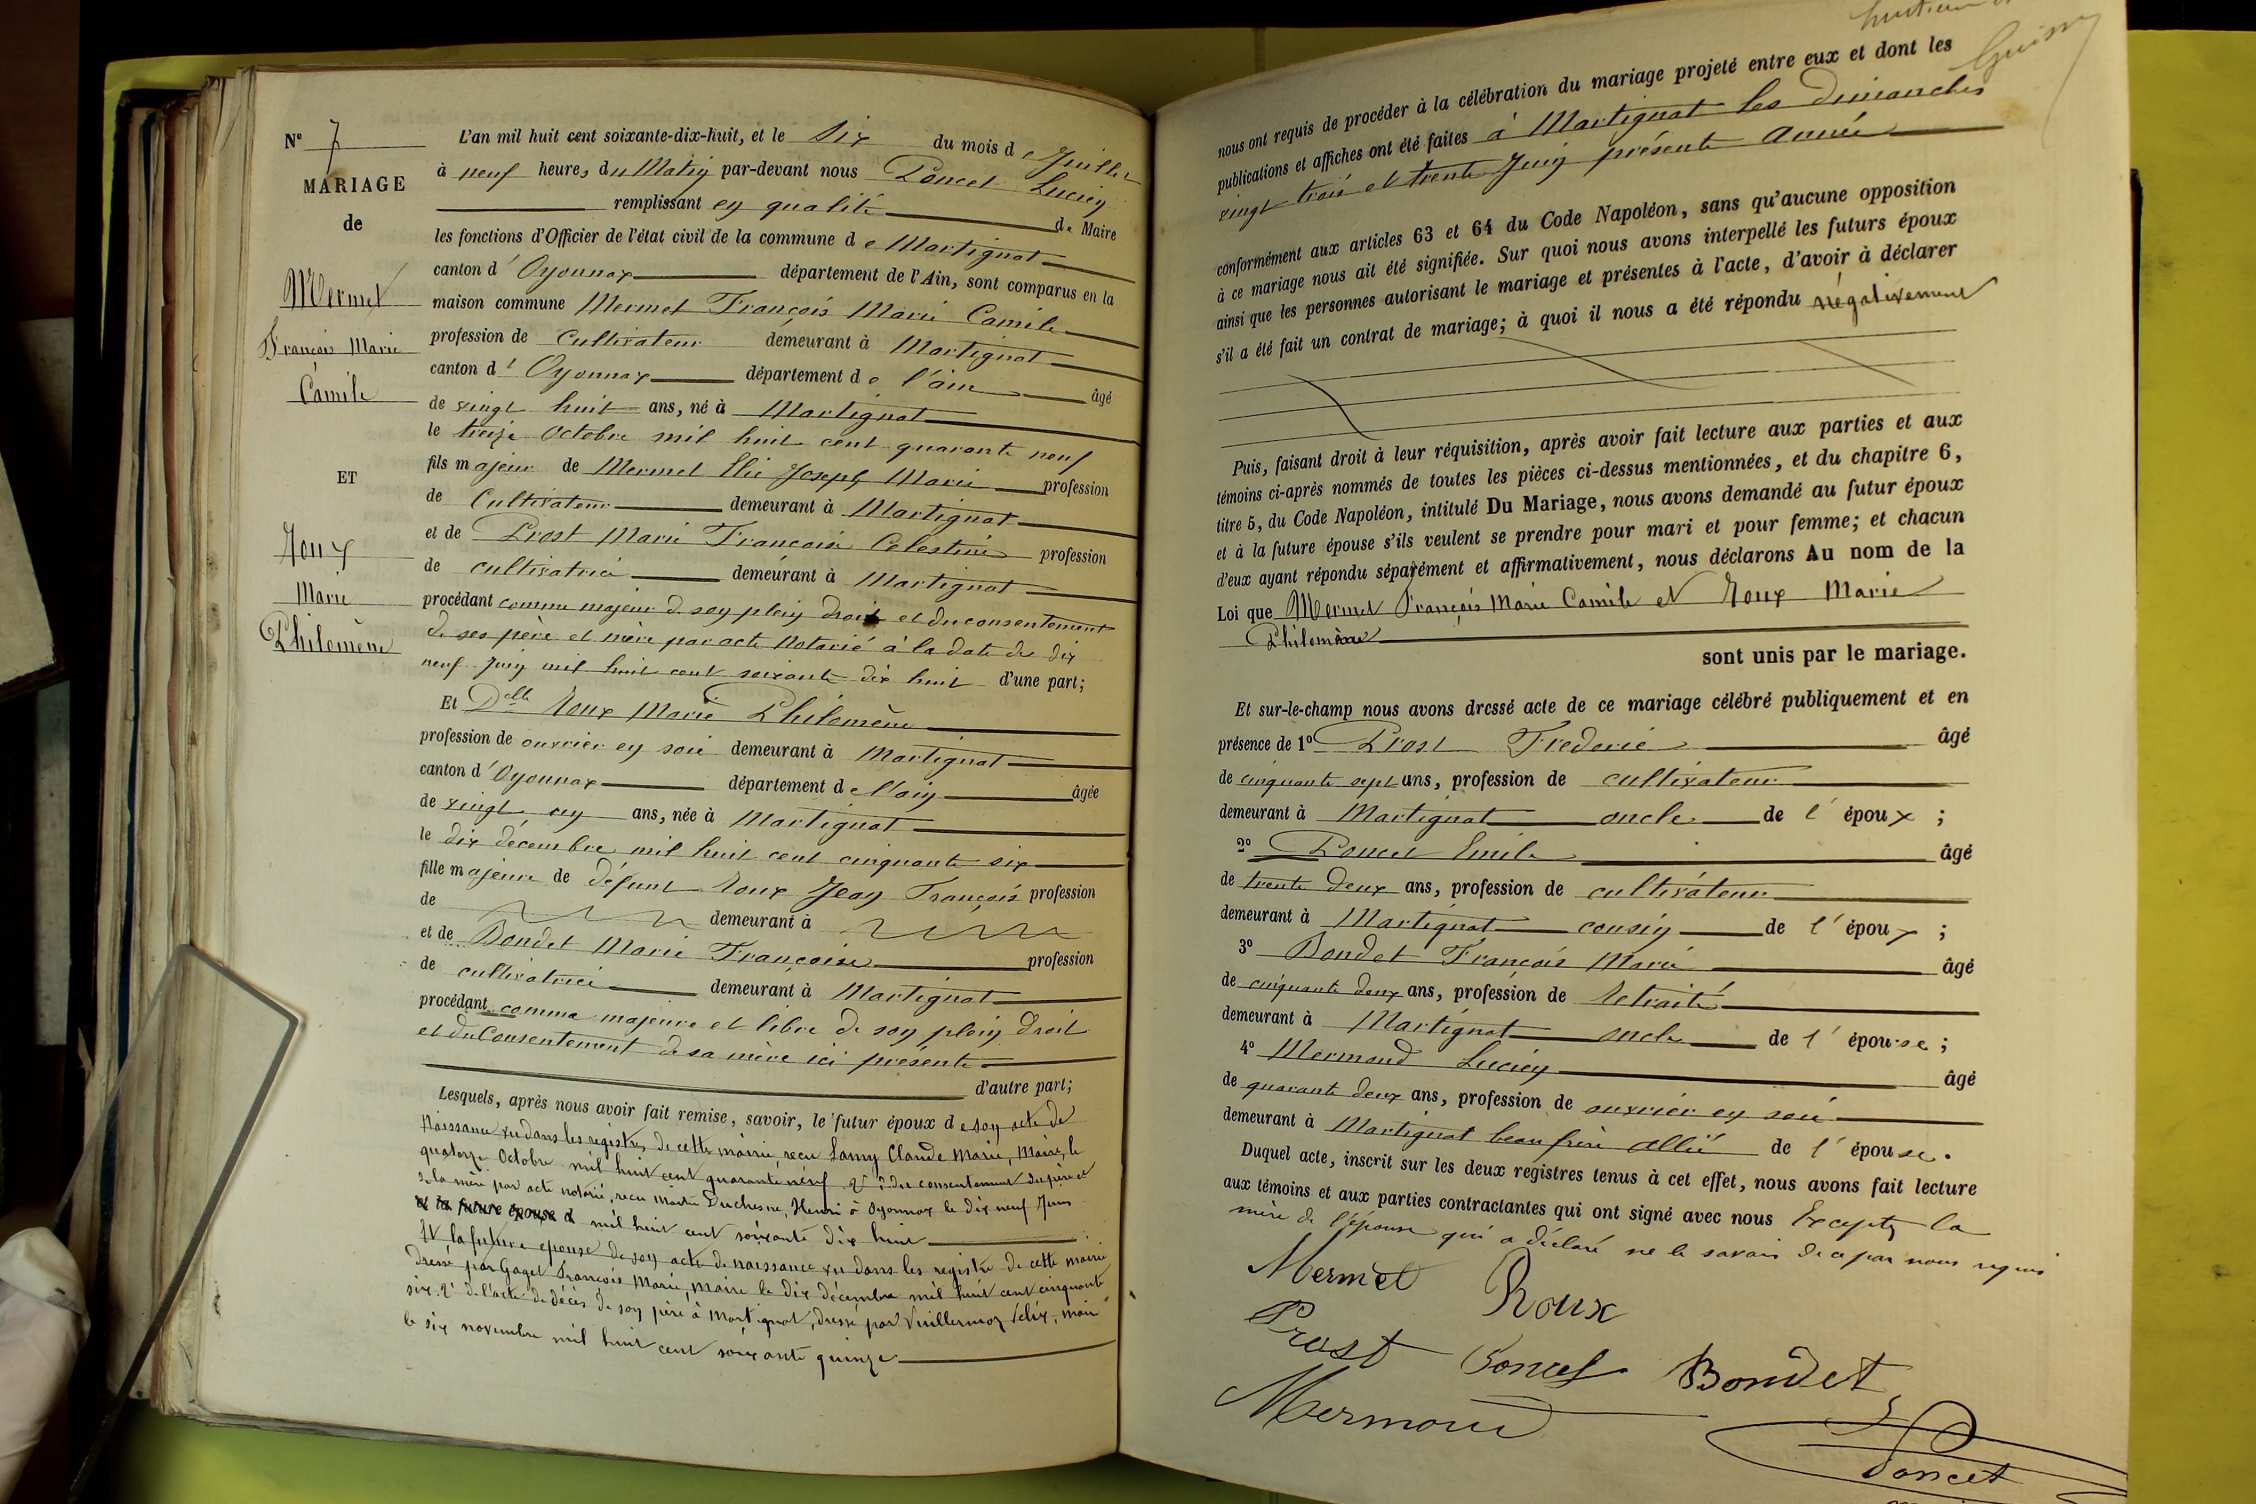 N° 7
MARIAGE
de
Mermet
François Marie
Camile
ET
Roux
Marie
Philomène
L'an mil huit cent soixante-dix-huit, et le Six du mois de Juillet
à neuf heures du Matin par-devant nous Poncet Lucien
remplissant en qualité de Maire
les fonctions d'Officier de l'état civil de la commune de Martignat
canton d'Oyonnax département de l'Ain, sont comparus en la
maison commune Mermet François Marie Camile
profession de Cultivateur demeurant à Martignat
canton d'Oyonnax département de l'ain âgé
de vingt huit ans, né à Martignat
le treize Octobre mil huit cent quarante neuf
fils majeur de Mermet Elie Joseph Marie profession
de Cultivateur demeurant à Martignat
et de Prost Marie Françoise Celestine profession
de cultivatrice demeurant à Martignat
procédant comme majeur de son plein droit et du consentement
de ses père et mère par acte Notarié à la date du dix
neuf Juin mil huit cent soixante dix huit d'une part;
Et Delle Roux Marie Philomène
profession de ouvrier en soie demeurant à Martignat
canton d'Oyonnax département de l'ain âgée
de vingt un ans, née à Martignat
le dix décembre mil huit cent cinquante six
fille majeure de défunt Roux Jean François profession
de demeurant à
et de Bondet Marie Françoise profession
de cultivatrice demeurant à Martignat
procédant comme majeure et libre de son plein droit
et du Consentement de sa mère ici présente
d'autre part;
Lesquels, après nous avoir fait remise, savoir, le futur époux de son acte de
Naissance vu dans les registres de cette mairie, recu Lamy Claude Marie, Maire, le
quatorze Octobre mil huit cent quarante neuf 2° du consentement du père et
de la mère par acte notarié, recu maitre Duchesne, Henri à Oyonnax le dix neuf Juin
et la future épouse d mil huit cent soixante dix huit
Et la future epouse de son acte de naissance vu dans les registre de cette mairie
dressé par Gaget François Marie, maire le dix décembre mil huit cent cinquante
six. 2° de l'acte de décès de son père à Martignat, dressé par Vuillermoz Félix, maire
le six novembre mil huit cent soixante quinze
nous ont requis de procéder à la célébration du mariage projeté entre eux et dont les
publications et affiches ont été faites à Martignat les dimanches
vingt trois et trente Juin présente année
conformément aux articles 63 et 64 du Code Napoléon, sans qu'aucune opposition
à ce mariage nous ait été signifiée. Sur quoi nous avons interpellé les futurs époux
ainsi que les personnes autorisant le mariage et présentes à l'acte, d'avoir à déclarer
s'il a été fait un contrat de mariage; à quoi il nous a été répondu négativement
Puis, faisant droit à leur réquisition, après avoir fait lecture aux parties et aux
témoins ci-après nommés de toutes les pièces ci-dessus mentionnées, et du chapitre 6,
titre 5, du Code Napoléon, intitulé Du Mariage, nous avons demandé au futur époux
et à la future épouse s'ils veulent se prendre pour mari et pour femme; et chacun
d'eux ayant répondu séparément et affirmativement, nous déclarons Au nom de la
Loi que Mermet François Marie Camile et Roux Marie
Philomène
sont unis par le mariage.
Et sur-le-champ nous avons dressé acte de ce mariage célébré publiquement et en
présence de 1° Prost Frederic âgé
de cinquante sept ans, profession de cultivateur
demeurant à Martignat oncle de l'époux;
2° Poncet Emile âgé
de trente deux ans, profession de cultivateur
demeurant à Martignat cousin de l'époux;
3° Bondet François Marie âgé
de cinquante deux ans, profession de Retraité
demeurant à Martignat oncle de l'épouse;
4° Mermond Lucien âgé
de quarante deux ans, profession de ouvrier en soie
demeurant à Martignat beau frère allié de l'épouse.
Duquel acte, inscrit sur les deux registres tenus à cet effet, nous avons fait lecture
aux témoins et aux parties contractantes qui ont signé avec nous Excepté la
mère de l'épouse qui a déclaré ne le savoir de ce par nous requis
Mermet Roux
Prost Poncet Bondet
Mermond
Poncet